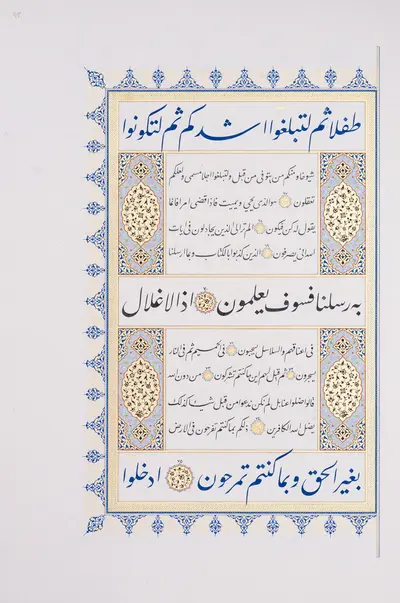 طفلا ثم لتبلغوا اشدكم ثم لتكونوا
شيوخا ومنكم من يتوفى من قبل ولتبلغوا اجلا مسمى ولعلكم
تعقلون هو الذي يحيي ويميت فاذا قضى امرا فانما
يقول له كن فيكون الم تر الى الذين يجادلون في آيات
الله انى يصرفون الذين كذبوا بالكتاب وبما ارسلنا
به رسلنا فسوف يعلمون اذ الاغلال
في اعناقهم والسلاسل يسحبون في الحميم ثم في النار
يسجرون ثم قيل لهم اين ما كنتم تشركون من دون الله
قالوا ضلوا عنا بل لم نكن ندعوا من قبل شيئا كذلك
يضل الله الكافرين ذلكم بما كنتم تفرحون في الارض
بغير الحق وبما كنتم تمرحون ادخلوا